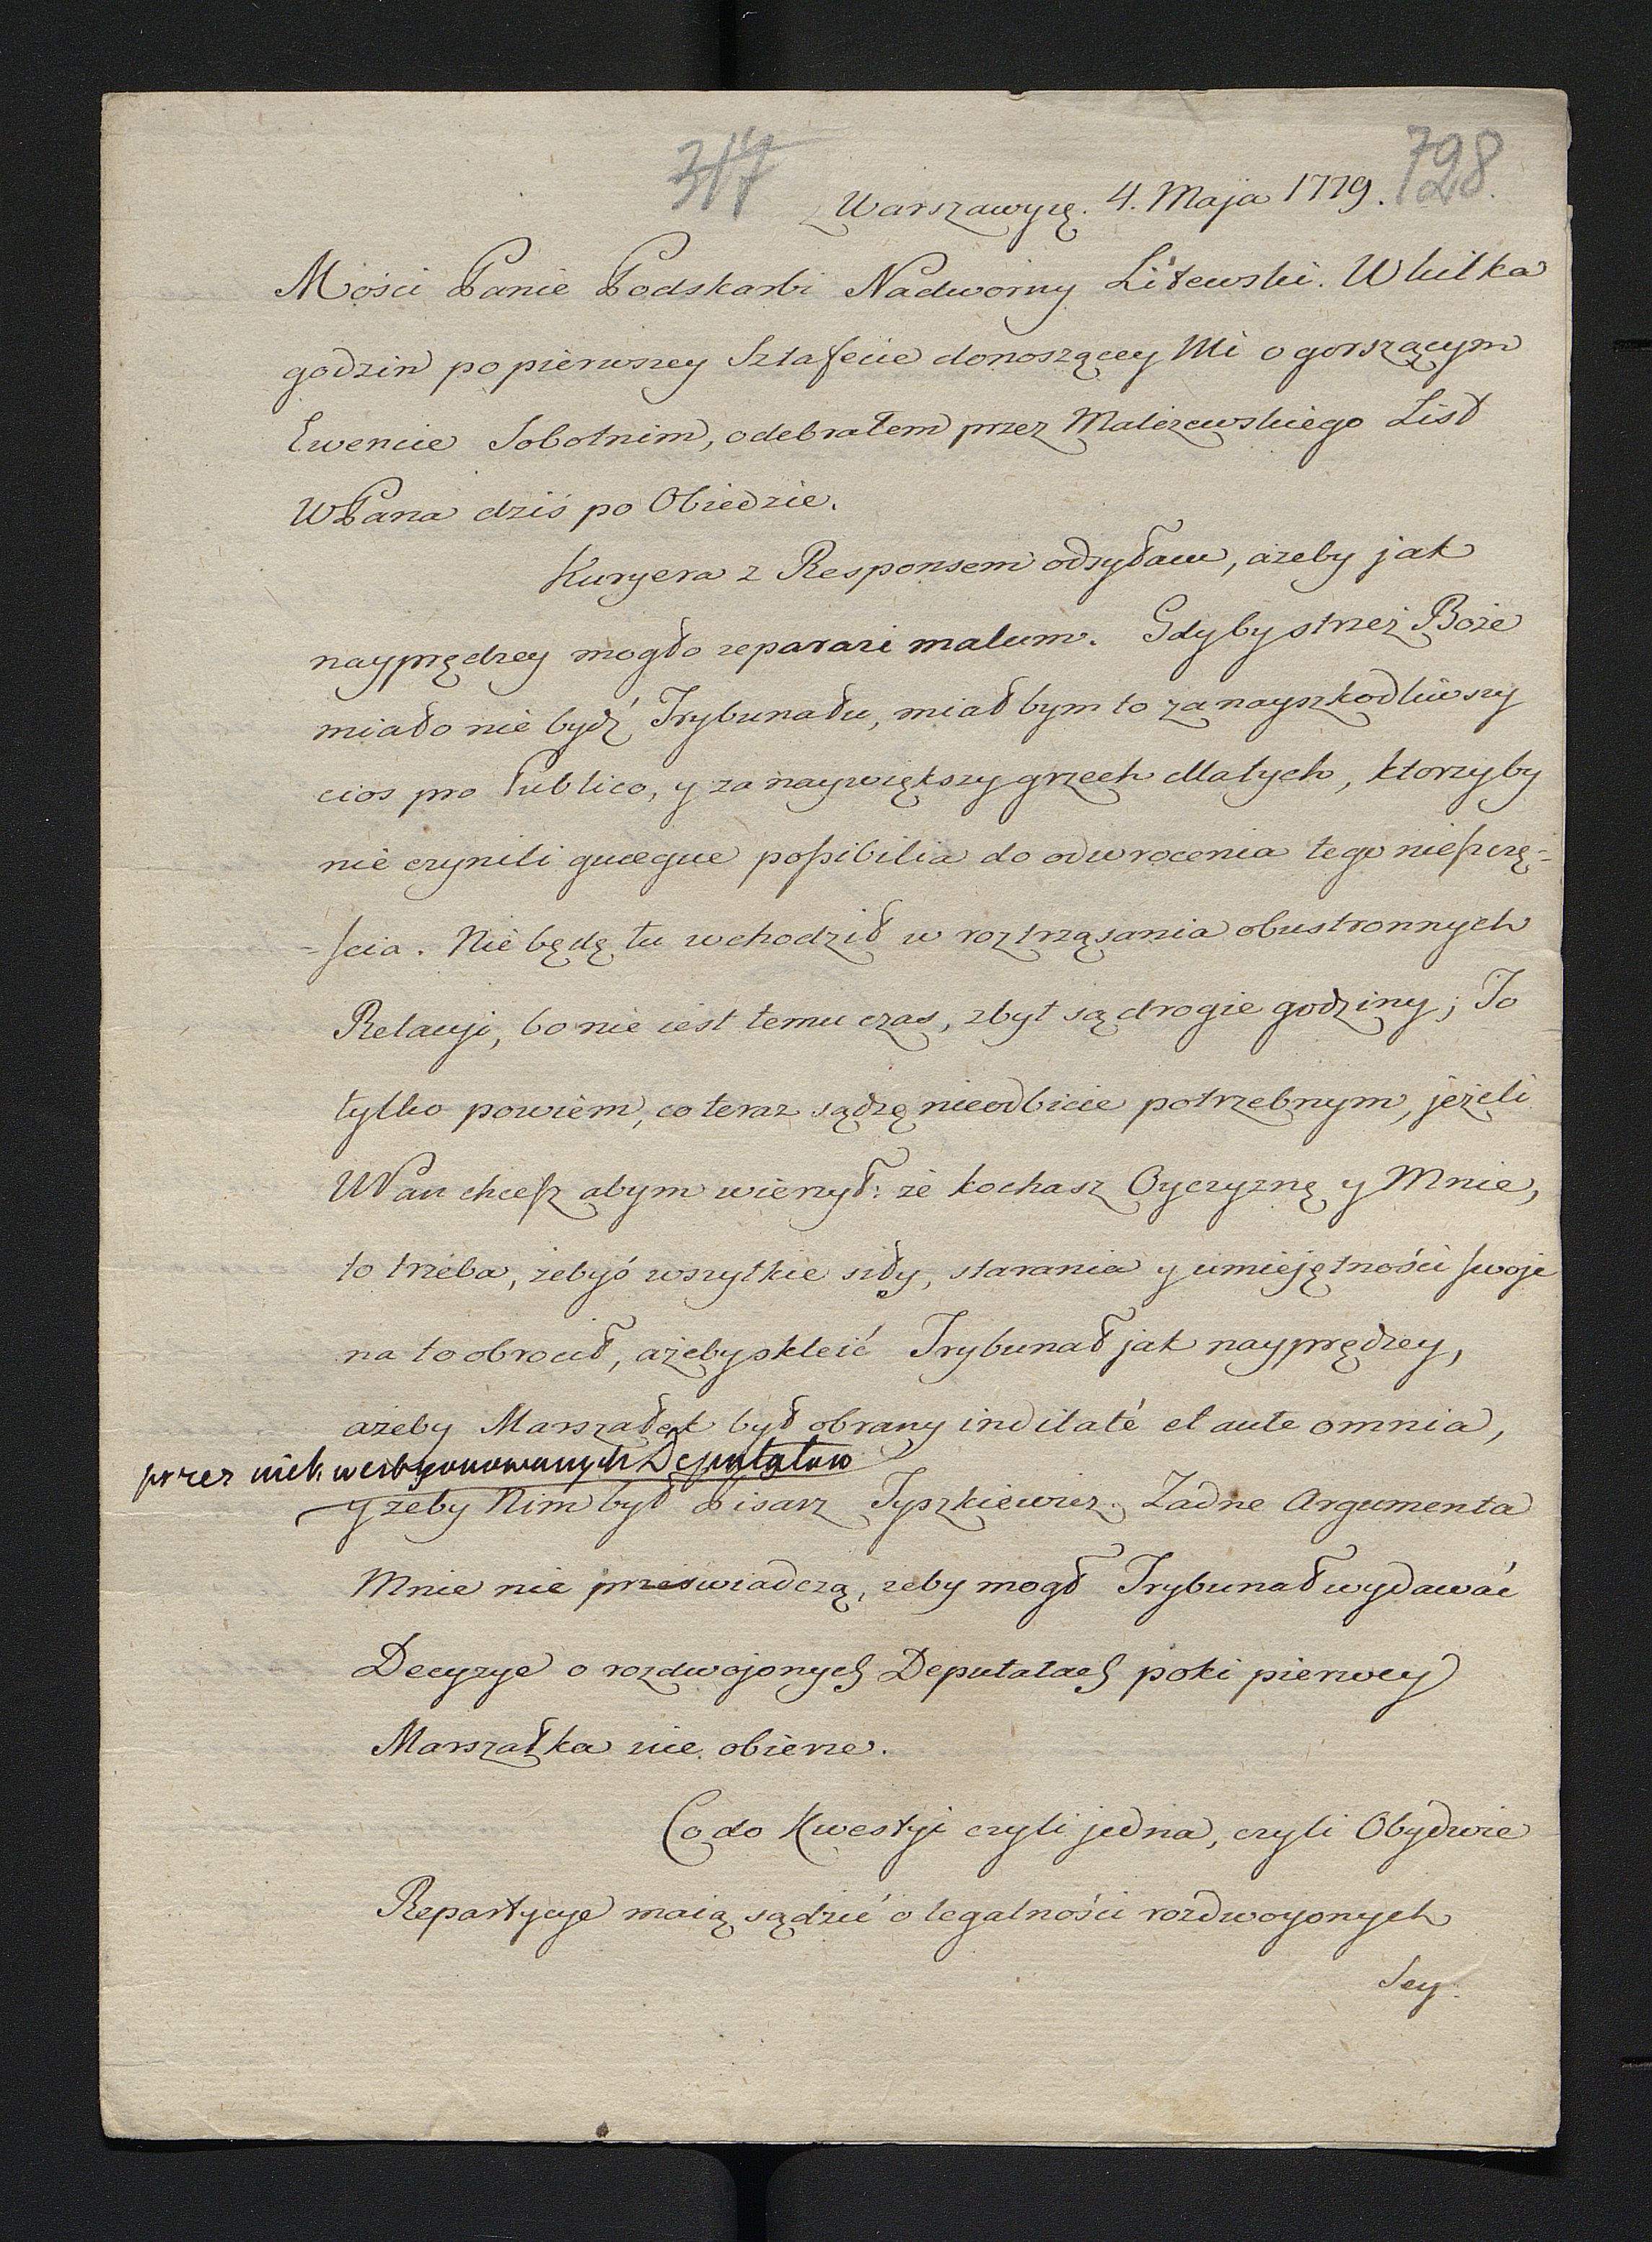 317
798
z Warszawy. 4. Maja 1779.
Mości Panie Podskarbi Nadworny Litewski. W kilka
godzin po pierwszey Sztafecie donoszącey Mi o gorszącym
Ewencie Sobotnim, odebrałem przez Maliszewskiego List
WPana dziś po Obiedzie.
Kuryera z Responsem odsyłam, ażeby jak
nayprędzey mogło reparari malum. Gdyby strzeż Boże
miało nie bydź Trybunału, miał bym to za nayszkodliwszy
cios pro Publico, y za naywiększy grzech dla tych, ktorzyby
nie czynili quæque possibilia do odwrocenia tego nieszczę=
=scia. Nie będę tu wchodził w roztrząsania obustronnych
Relacyi, bo nie iest temu czas, zbyt są drogie godziny; To
tylko powiem, co teraz sądzę nieodbicie potrzebnym, jeżeli
WPan chcesz abym wierzył: że kochasz Oyczyznę y Mnie,
to trzeba, żebyś wszytkie siły, starania y umiejętności swoje
na to obrocił, ażeby skleić Trybunał jak nayprędzey,
ażeby Marszałek był obrany indilaté et ante omnia,
przez niekwestyonowanych Deputatow
y żeby Nim był Pisarz Tyszkiewicz. Żadne Argumenta
Mnie nie przeswiadczą, żeby mogł Trybunał wydawać
Decyzye o rozdwojonych Deputatach poki pierwey
Marszałka nie obierze.
Co do Kwestyi czyli jedna, czyli Obydwie
Repartycye maią sądzić o legalności rozdwoyonych
Sey: